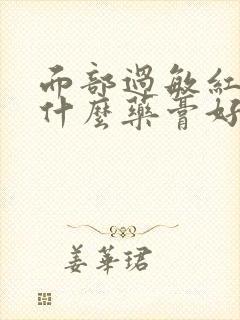 面部過敏紅
什麼藥膏好
姜華珺